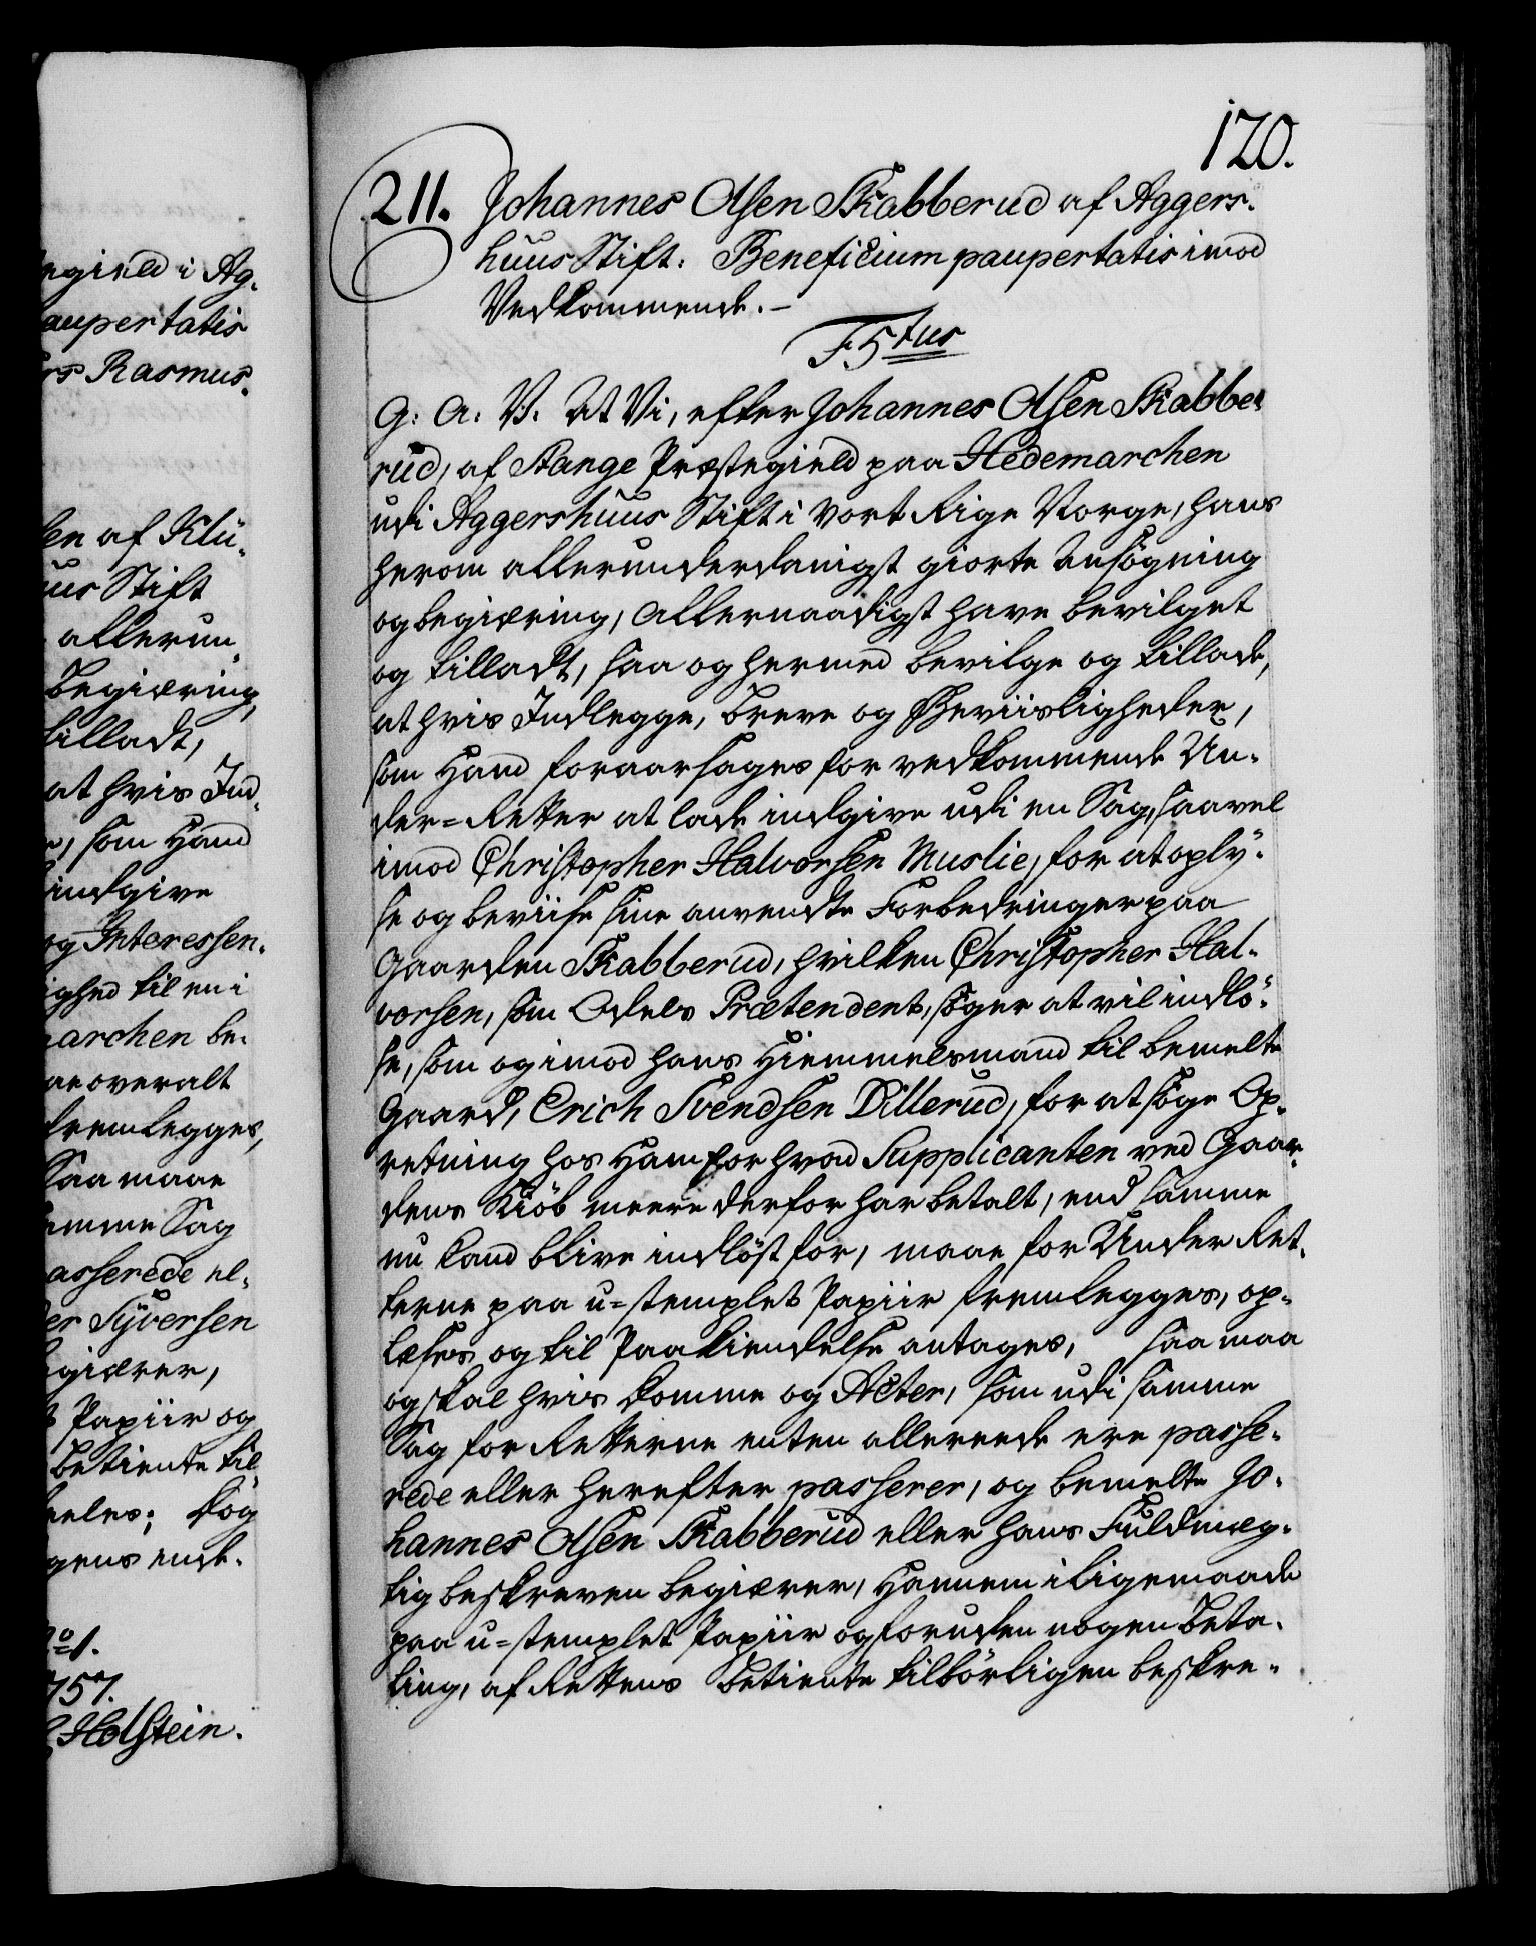 egield i Ag,
aupertatis
rs Rasmus,
en af Klü,
uus Stift
allerun,
Begiæring,
tilladt,
at hvis Ind,
som Hand
indgive
og Interessen,
ighed til en i
archen be,
ae overalt
fremlegges,
Saa maae
emme Sag
asserede el,
er Syversen
giærer,
Papiir og
Betiente til,
eeles; Dog
gens end,
No 1.
757.
Holstein.
120.
211. Johannes Olsen Skabberud af Aggers,
huus Stift: Beneficium paupertatis imod
Vedkommende. –
F 5tus
G: A: V: At Vi, efter Johannes Olsen Skabbe,
rud, af Stange Præstegield paa Hedemarchen
udi Aggershuus Stift i Vort Rige Norge, hans
herom allerunderdanigst giorte Ansögning
og begiæring, allernaadigst have bevilget
og tilladt, saa og hermed bevilge og tillade,
at hvis Indlegge, breve og Beviisligheder,
som Hand foraarsages for vedkommende Un,
der=Retter at lade indgive udi en Sag, saavel
imod Christopher Halvorsen Muslie, for at oply,
se og beviise sine anvendte Forbedringer paa
Gaarden Skabberud, hvilken Christopher Hal,
vorsen, som Odels Prætendent, söger at vil indlö,
se, som og imod hans Hiemmelsmand til bemelte
Gaard, Erich Svendsen Dillerud, for at söge Op,
retning hos Ham for hvad Supplicanten ved Gaar,
dens Kiöb meere derfor har betalt, end samme
nu kand blive indlöst for, maae for Under Ret,
terne paa u=stemplet Papiir fremlegges, op,
læses og til Paakiendelse antages, saa maa
og skal hvis Domme og Acter, som udi samme
Sag for Retterne enten allereede ere passe,
rede eller herefter passerer, og bemelte Jo,
hannes Olsen Skabberud eller hans Fuldmæg,
tig beskreven begiærer, Hannem i ligemaade
paa u=stemplet Papiir og foruden nogen beta,
ling, af Rettens Betiente tilbörligen beskre,